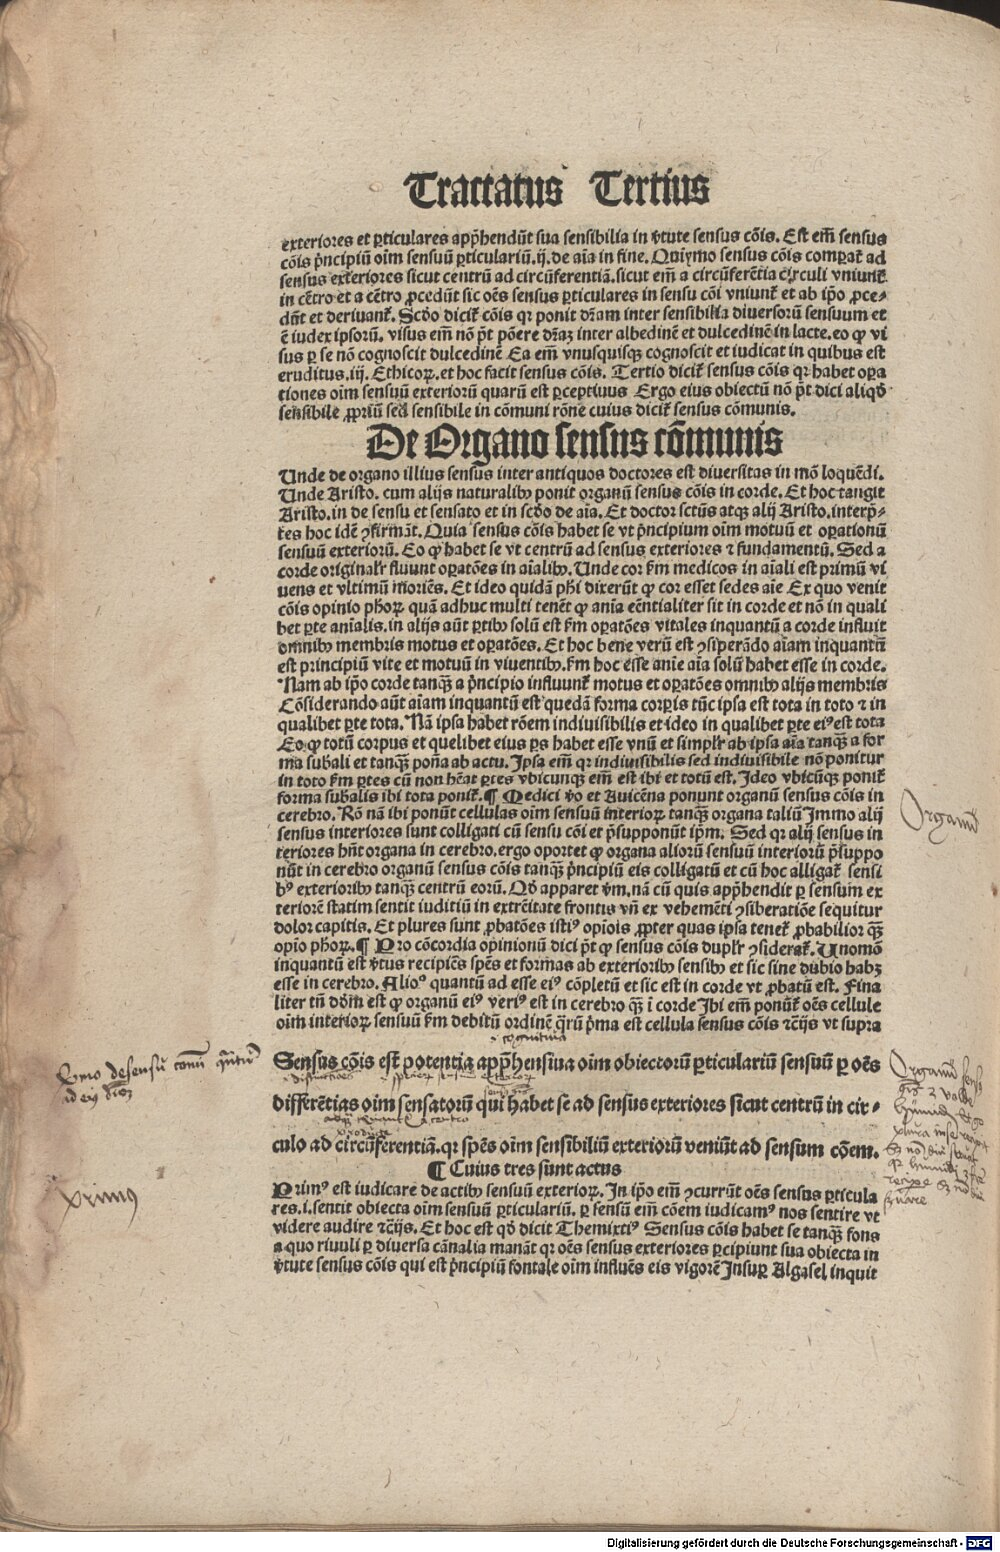 Tractatus Tertius
exteriores et ꝑticulares appͬhendūt sua sensibilia in ṽtute sensus cōis. Est em̄ sensus
cōis pͥncipiū oīm sensuū ꝑticulariū.ij.de aīa in fine. sensus cōis comparat̄ ad
sensus exteriores sicut centrū ad circūferentiā.sicut em̄ a circūferētia circuli vniunt̄
in cētro et a cētro ꝓcedūt sic oēs sensus ꝑticulares in sensu cōi vniunt̄ et ab ip̄o ꝓce-
dūt et deriuant̄. Scd̄o dicit̄ cōis qꝛ ponit dr̄am inter sensibilia diuersorū sensuum et
ē iudex ipsorū. visus em̄ nō pt̄ pōere dr̄aꝫ inter albedinē et dulcedinē in lacte.eo ꝙ vi
sus ꝑ se nō cognoscit dulcedinē Ea em̄ vnusquisqꝫ cognoscit et iudicat in quibus est
eruditus.iij. Ethicoꝝ.et hoc facit sensus cōis. Tertio dicit̄ sensus cōis qꝛ habet oꝑa
tiones oīm sensuū exteriorū quarū est ꝑceptiuus Ergo eius obiectū nō pt̄ dici aliqd̄
sensibile ꝓpriū sed sensibile in cōmuni rōne cuius dicit̄ sensus cōmunis.
De Organo sensus cōmunis
Unde de organo illius sensus inter antiquos doctores est diuersitas in mō loquēdi.
Unde Aristo. cum alijs naturalibꝰ ponit organū sensus cōis in corde. Et hoc tangit
Aristo.in de sensu et sensato et in scd̄o de aīa. Et doctor sctūs atqꝫ alij Aristo.interpͬ-
tes hoc idē ꝯfirmāt. Quia sensus cōis habet se vt pͥncipium oīm motuū et oꝑationū
sensuū exteriorū. Eo ꝙ habet se vt centrū ad sensus exteriores ⁊ fundamentū. Sed a
corde originalr̄ fluunt oꝑatōes in aīalibꝰ. Unde cor ẜm medicos in aīali est primū vi
uens et vltimū moriēs. Et ideo quidā phī dixerūt ꝙ cor esset sedes aīe Ex quo venit
cōis opinio phoꝝ quā adhuc multi tenēt ꝙ anīa eēntialiter sit in corde et nō in quali
bet ꝑte anīalis.in alijs aūt ꝑtibꝰ solū est ẜm oꝑatōes vitales inquantū a corde influit
omnibꝰ membris motus et oꝑatōes. Et hoc bene verū est ꝯsiderādo aīam inquantū
est principiū vite et motuū in viuentibꝰ.ẜm hoc esse anīe aīa solū habet esse in corde.
Nam ab ip̄o corde tanqꝫ̄ a pͥncipio influunt̄ motus et oꝑatōes omnibꝰ alijs membris
Cōsiderando aūt aīam inquantū est quedā forma corꝑis tūc ipsa est tota in toto ⁊ in
qualibet ꝑte tota. Nā ipsa habet rōem indiuisibilis et ideo in qualibet ꝑte eiꝰ est tota
Eo ꝙ totū corpus et quelibet eius ꝑs habet esse vnū et simplr̄ ab ipsa aīa tanqꝫ̄ a for
ma sub̄ali et tanqꝫ̄ ab actu. Ipsa em̄ qꝛ indiuisibilis sed indiuisibile nō ponitur
in toto ẜm ꝑtes cū non hēat ꝑtes vbicunqꝫ em̄ est ibi et totū est. Ideo vbicūqꝫ ponit̄
forma sub̄alis ibi tota ponit̄.¶ Medici ṽo et Auicēna ponunt organū sensus cōis in
cerebro. Rō nā ibi ponūt cellulas oīm sensuū interioꝝ tanqꝫ̄ organa taliū Immo alij
sensus interiores sunt colligati cū sensu cōi et pͬsupponūt ipm̄. Sed qꝛ alij sensus in
teriores hn̄t organa in cerebro.ergo oportet ꝙ organa aliorū sensuū interiorū pͬsuppo
nūt in cerebro organū sensus cōis tanqꝫ̄ pͥncipiū eis colligatū et cū hoc alligat̄ sensi
bꝰ exterioribꝰ tanqꝫ̄ centrū eorū. Qd̄ apparet nā cū quis appͬhendit ꝑ sensum ex
teriorē statim sentit iuditiū in extrēitate frontis vn̄ ex vehemēti ꝯsideratiōe sequitur
dolor capitis. Et plures sunt ꝓbatōes istiꝰ opiōis ꝓpter quas ipsa tenet̄ ꝓbabilior qꝫ̄
opīo phoꝝ.¶ Pro cōcordia opinionū dici pt̄ ꝙ sensus cōis duplr̄ ꝯsiderat̄. Unomō
inquantū est ṽtus recipiēs spēs et formas ab exterioribꝰ sensibꝰ et sic sine dubio habꝫ
esse in cerebro. Alioꝰ quantū ad esse eiꝰ cōpletū et sic est in corde vt ꝓbatū est. Fina
liter tn̄ est ꝙ organū eiꝰ veriꝰ est in cerebro qꝫ̄ ī corde Ibi em̄ ponūt̄ oēs cellule
oīm interioꝝ sensuū ẜm debitū ordinē qͣrū pͥma est cellula sensus cōis ⁊cͥs vt supra
Sensus cōis est potentia appͬhensiua oīm obiectorū ꝑticulariū sensuū ꝑ oēs
differētias oīm sensatorū qui habet se ad sensus exteriores sicut centrū in cir-
culo ad circūferentiā.qꝛ spēs oīm sensibiliū exteriorū veniūt ad sensum cōem.
¶ Cuius tres sunt actus
Primꝰ est iudicare de actibꝰ sensuū exterioꝝ. In ip̄o em̄ ꝯcurrūt oēs sensus ꝑticula
res.i.sentit obiecta oīm sensuū ꝑticulariū. ꝑ sensū em̄ cōem iudicamꝰ nos sentire vt
videre audire ⁊cͥs. Et hoc est qd̄ dicit Themixtiꝰ Sensus cōis habet se tanqꝫ̄ fons
a quo riuuli ꝑ diuersa cānalia manāt qꝛ oēs sensus exteriores ꝑcipiunt sua obiecta in
ṽtute sensus cōis qui est pͥncipiū fontale oīm influēs eis vigorē Insuꝑ Algasel inquit
Organū
primus
Digitalisierung gefördert durch die Deutsche Forschungsgemeinschaft - DFG